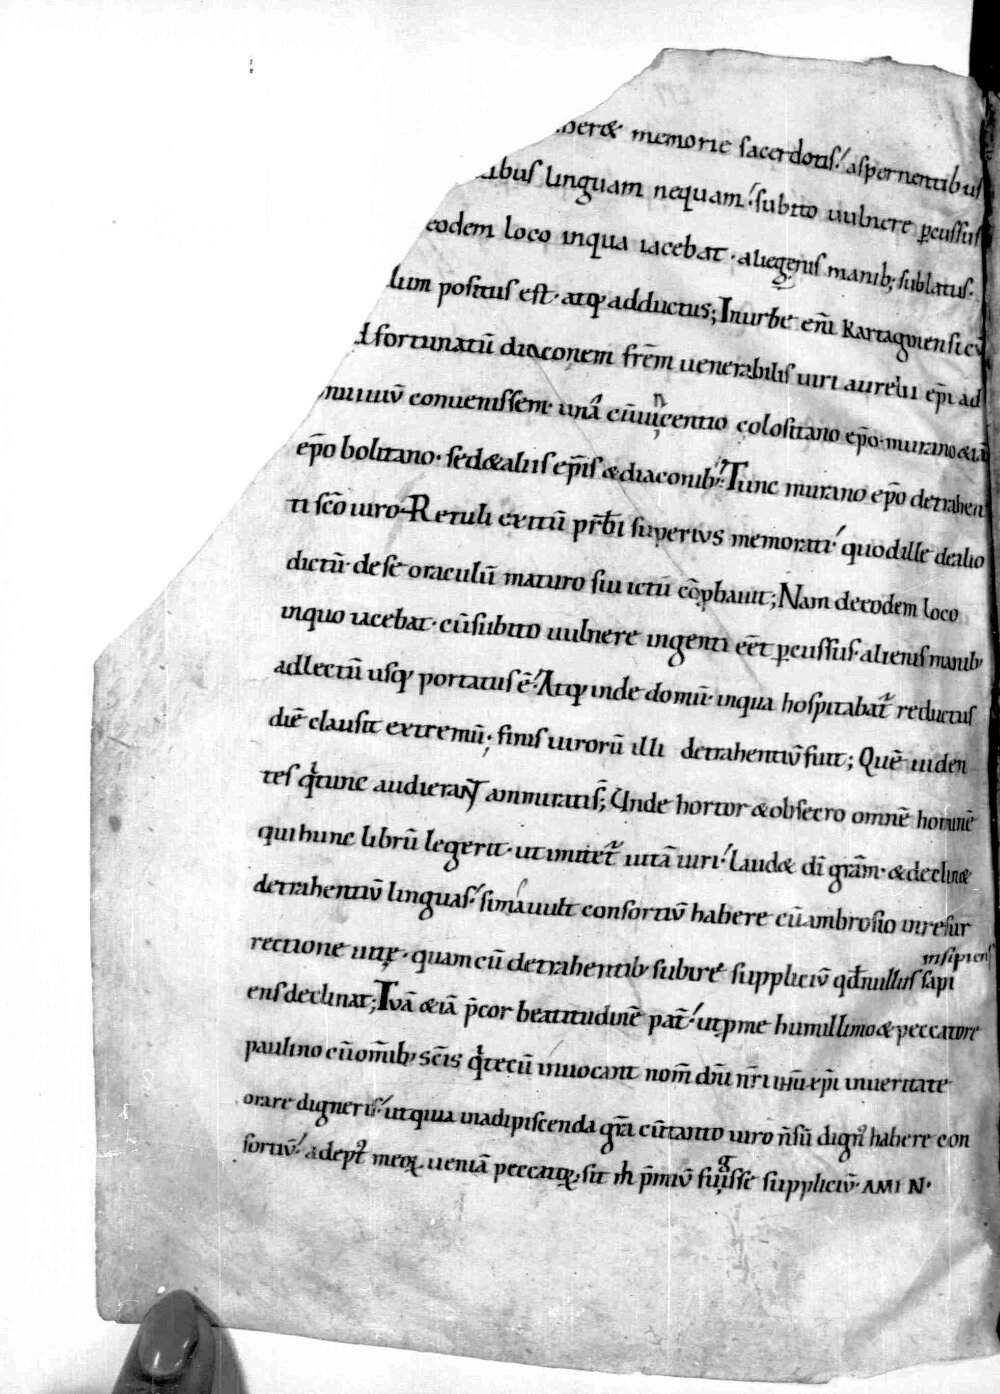 memorie sacerdotis. aspernentibus
ibus linguam nequam. subito uulnere ꝑcussus
eodem loco inqua iacebat. aliegenis manib; sublatus.
lum positus est. atq; adductus; Inurbe eni̅ kartaginensi cu̅
fortunatu̅ diaconem fr̅em uenerabilis uiri aurelii ep̅i ad
conuenissem. una cu̅ uincentio colositano ep̅o. murano & ia̅
ep̅o bolitano. sed & aliis ep̅is & diaconib; Tunc murano ep̅o detrahen
ti sc̅o uiro. Retuli exitu̅ pr̅bi superius memorati. quod ille dealio
dictu̅. dese oraculu̅ maturo sui ictu co̅ꝓbauit; Nam deeodem loco
inquo iacebat. cu̅ subito uulnere ingenti ee̅t ꝑcussus. alienis manib;
adlectu̅ usq; portatus e̅. Atq; inde domu̅. inqua hospitabat᷑ reductus
die̅ clausit extremu̅; finis uiroru̅ illi detrahentiu̅ fuit; Que̅ uiden
tes q̇ tunc audierant ammiratis̅; Unde hortor & obsecro omne̅ homine̅
qui hunc libru̅ legerit. ut imitet᷑ uita̅ uiri. laud& di̅ gra̅m. & declin&
detrahentiu̅ linguas. si mauult consortiu̅ habere cu̅ ambrosio inresur
rectione uitę. quam cu̅ detrahentib; subire suppliciu̅ qd̅ nullus sapi
insipiens
ens declinat; Iua̅ & ia̅ p̅cor beatitudine̅ pat̅. ut ꝓ me humillimo & peccatore
paulino cu̅ om̅ib; sc̅is q̇ tecu̅ inuocant nom̅ dn̅i nr̅i ihu̅ xp̅i inueritate
orare digneris. ut quia inadipiscenda gr̅a cu̅ tanto uiro n̅ su̅ dign᷒ habere con
sortiu̅. adept᷒ meoꝝ uenia̅ peccatoꝝ. sit m̅ p̅miu̅ fugisse suppliciu̅. AMEN.